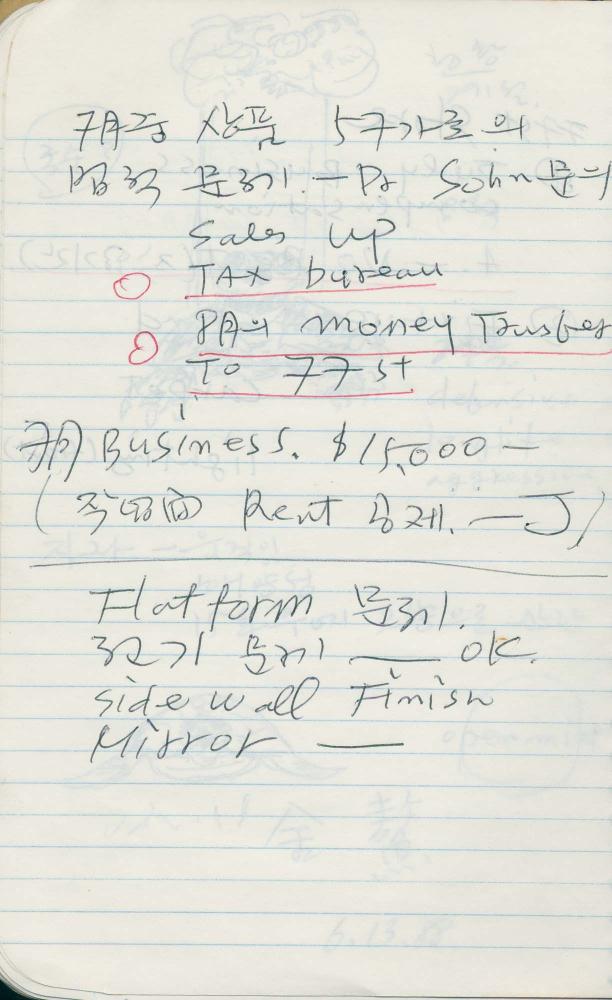 상품 57가로의
법적 문제. — Dr Sohn 문의
Sales up
TAX bureau
PA의 money Trusfer
To 77 st
Business. $15,000 —
( Rent 공제. — J)
Flatform 문제.
전기 문제 — OK.
side wall Finish
Mirror —